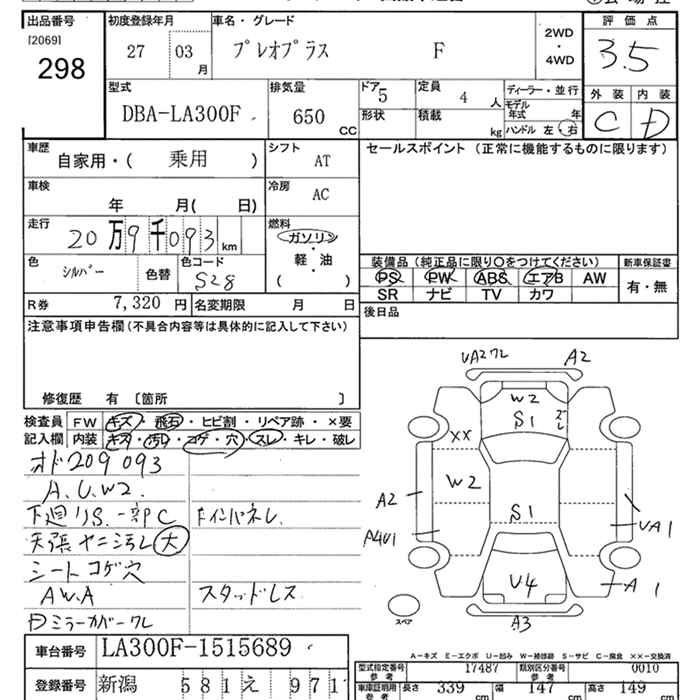 出品番号 初度登録年月 車名・グレード 評価点
[2069] 298
27 03 月 プレオプラス F 2WD・4WD 3.5
型式 排気量 ドア 定員 ディーラー・並行 外装 内装
DBA-LA300F 650 CC 5 4 人 C D
形状 積載 kg モデル年式 年
ハンドル 左 右
車歴 自家用・( 乗用 ) シフト AT セールスポイント (正常に機能するものに限ります)
車検 年 月( 日) 冷房 AC
走行 20万9千093 km 燃料 ガソリン・軽・油 ( )
色 シルバー 色替 色コード S28
装備品 (純正品に限り○をつけてください) 新車保証書
PS PW ABS エアB AW 有・無
SR ナビ TV カワ
R券 7,320 円 名変期限 月 日 後日品
注意事項申告欄 (不具合内容等は具体的に記入して下さい)
修復歴 有 〔箇所 〕
検査員 FW キズ・飛石・ヒビ割・リペア跡・×要
記入欄 内装 キズ・汚レ・コゲ・穴・スレ・キレ・破レ
オド209093
A.U.W2.
下廻リS.一部C
天張ヤニ汚レ大
シートコゲ穴
A W.A スタッドレス
ミラーカバーワレ
UA2ワレ A2
W2
S1
XX
W2
A2
S1
UA1
U4
A1
A3
スペア
A－キズ E－エクボ U－凹み W－補修跡 S－サビ C－腐食 ××－交換済
車台番号 LA300F-1515689
型式指定番号 参考 17487 類別区分番号 参考 0010
登録番号 新潟 581 え 971
車庫証明用 参考 長さ 339 cm 幅 147 cm 高さ 149 cm